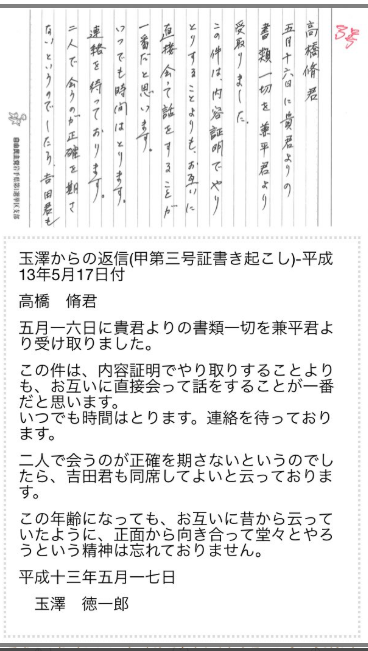 3号
高橋脩君
五月十六日に貴君よりの
書類一切を兼平君より
受取りました。
この件は、内容証明でやり
とりすることよりも、お互いに
直接会て話をすることが
一番だと思います。
いつでも時間はとります。
連絡を待っております。
二人で会うのが正確を期さ
ないというのでしたら、吉田君も
玉澤からの返信(甲第三号証書き起こし)-平成
13年5月17日付
高橋 脩君
五月一六日に貴君よりの書類一切を兼平君よ
り受け取りました。
この件は、内容証明でやり取りすることより
も、お互いに直接会って話をすることが一番
だと思います。
いつでも時間はとります。連絡を待っており
ます。
二人で会うのが正確を期さないというのでし
たら、吉田君も同席してよいと云っておりま
す。
この年齢になっても、お互いに昔から云って
いたように、正面から向き合って堂々とやろ
うという精神は忘れておりません。
平成十三年五月一七日
玉澤 徳一郎